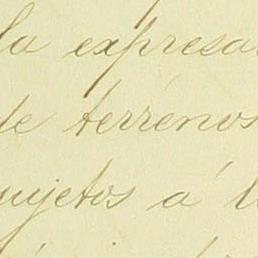 la expresa
de terrenos
sujetos á l